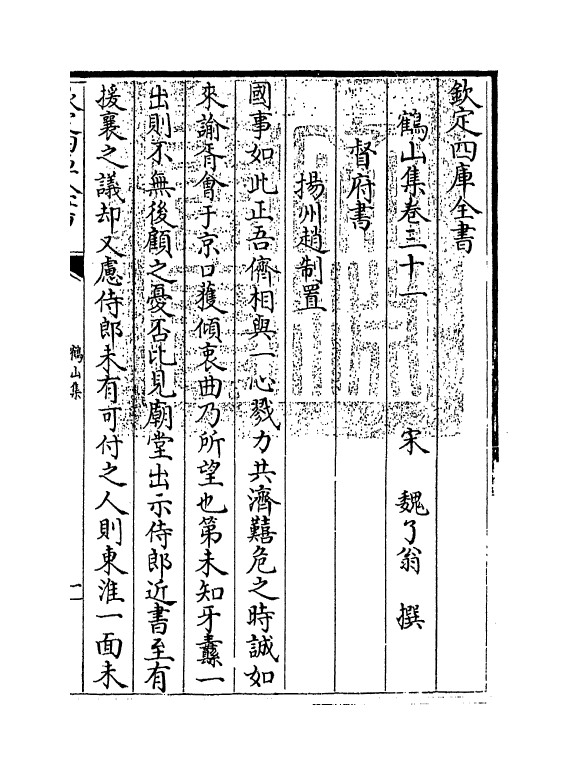 欽定四庫全書
鶴山集卷三十一
宋　魏了翁　撰
督府書
揚州趙制置
國事如此正吾儕相與一心戮力共濟囏危之時誠如
來諭胥會于京口獲傾衷曲乃所望也第未知牙纛一
出則不無後顧之憂否比見廟堂出示侍郎近書至有
援襄之議却又慮侍郎未有可付之人則東淮一面未
鶴山集
一